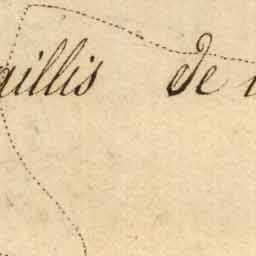 aillis de